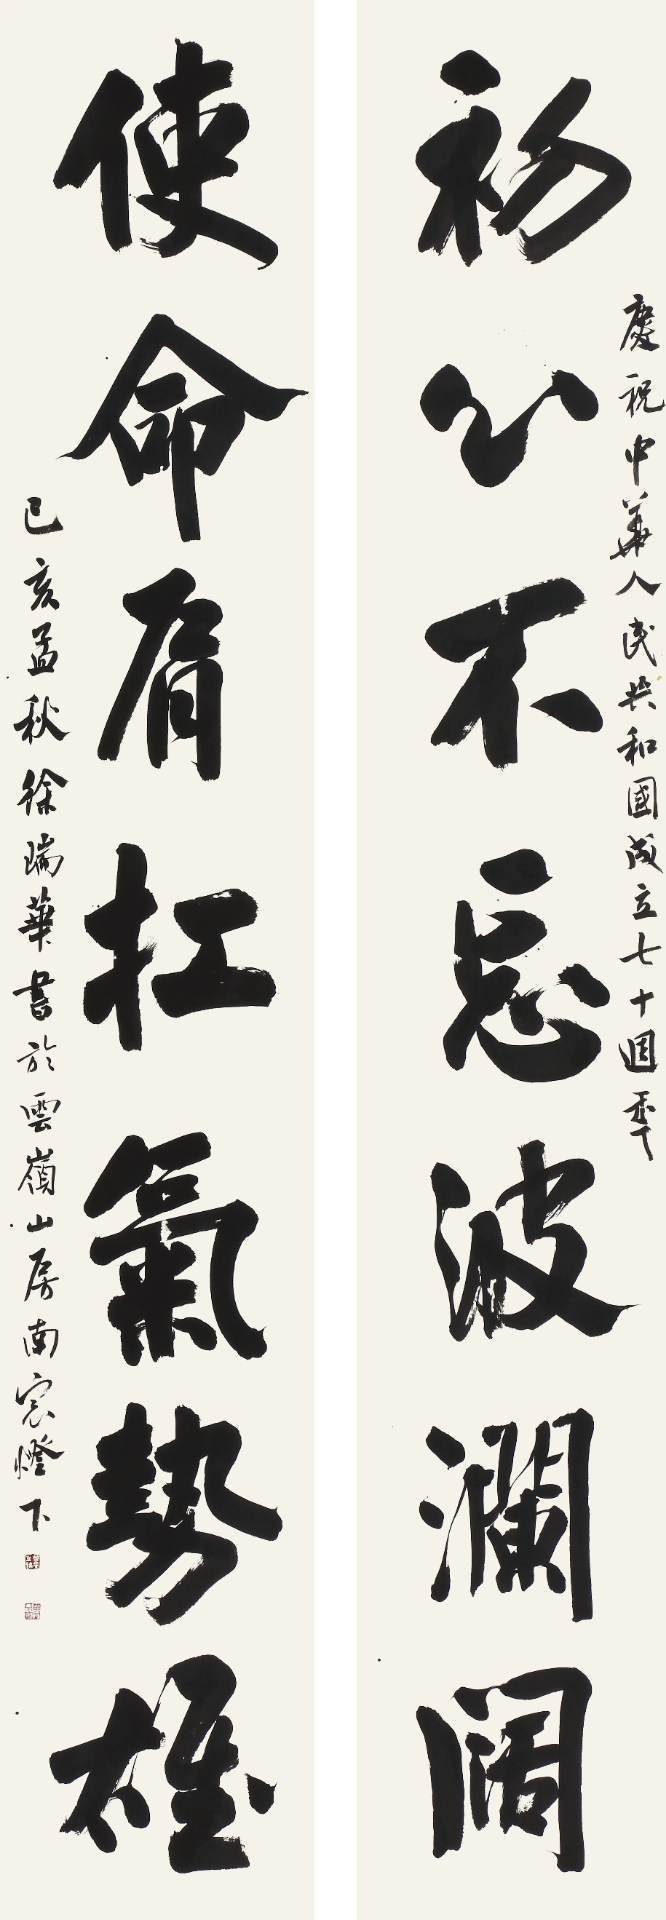 慶祝中華人民共和國成立七十週年
初心不忘波瀾闊
使命肩扛氣勢雄
己亥孟秋徐瑞華書於雲嶺山房南窗燈下